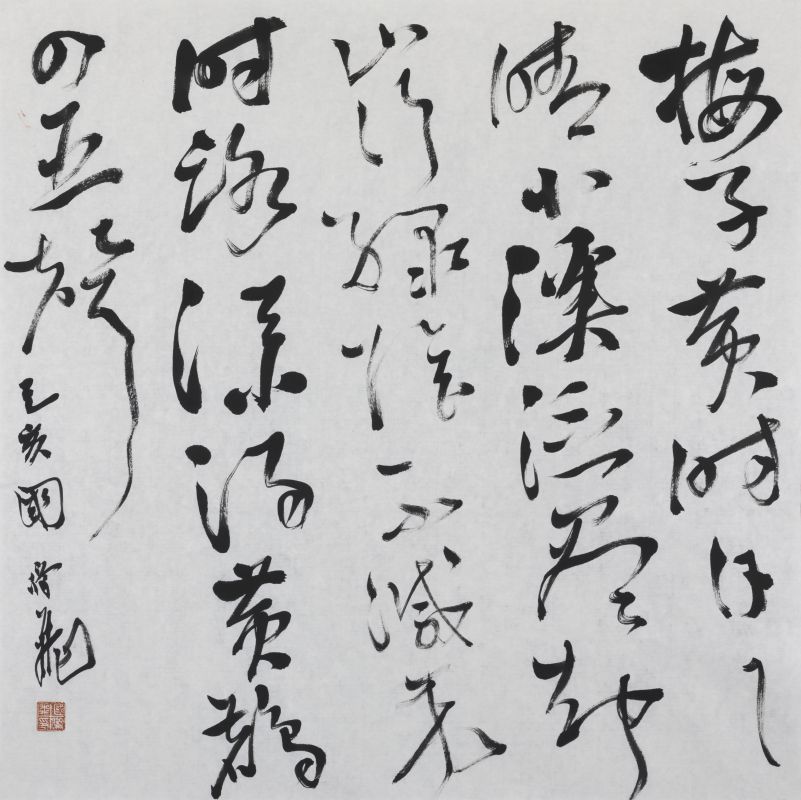 梅子黄时日〻
晴小溪泛尽却
山行绿阴不減来
时路添得黄鹂
四五聲
己亥